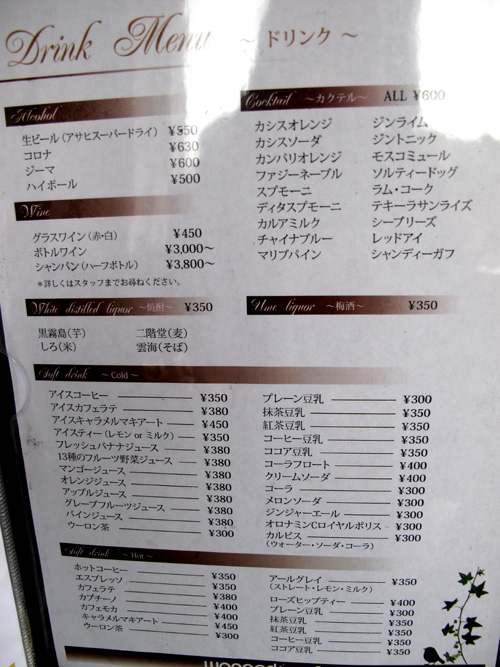 Drink Menu ～ ドリンク ～
Alcohol
生ビール（アサヒスーパードライ） ¥550
コロナ ¥630
ジーマ ¥600
ハイボール ¥500
Wine
グラスワイン（赤・白） ¥450
ボトルワイン ¥3,000～
シャンパン（ハーフボトル） ¥3,800～
＊詳しくはスタッフまでお尋ねください。
White distilled liquor ～焼酎～ ¥350
黒霧島（芋） 二階堂（麦）
しろ（米） 雲海（そば）
Cocktail ～カクテル～ ALL ¥600
カシスオレンジ ジンライム
カシスソーダ ジントニック
カンパリオレンジ モスコミュール
ファジーネーブル ソルティードッグ
スプモーニ ラム・コーク
ディタスプモーニ テキーラサンライズ
カルアミルク シーブリーズ
チャイナブルー レッドアイ
マリブパイン シャンディーガフ
Ume liquor ～梅酒～ ¥350
Soft drink ～ Cold ～
アイスコーヒー ¥350
アイスカフェラテ ¥380
アイスキャラメルマキアート ¥450
アイスティー（レモン or ミルク） ¥350
フレッシュバナナジュース ¥380
13種のフルーツ野菜ジュース ¥380
マンゴージュース ¥380
オレンジジュース ¥380
アップルジュース ¥380
グレープフルーツジュース ¥380
パインジュース ¥380
ウーロン茶 ¥300
プレーン豆乳 ¥300
抹茶豆乳 ¥350
紅茶豆乳 ¥350
コーヒー豆乳 ¥350
ココア豆乳 ¥350
コーラフロート ¥400
クリームソーダ ¥400
コーラ ¥300
メロンソーダ ¥300
ジンジャーエール ¥300
オロナミンCロイヤルポリス ¥300
カルピス ¥300
（ウォーター・ソーダ・コーラ）
Soft drink ～ Hot ～
ホットコーヒー ¥350
エスプレッソ ¥350
カフェラテ ¥380
カプチーノ ¥400
カフェモカ ¥400
キャラメルマキアート ¥450
ウーロン茶 ¥300
アールグレイ ¥350
（ストレート・レモン・ミルク）
ローズヒップティー ¥400
プレーン豆乳 ¥300
抹茶豆乳 ¥350
紅茶豆乳 ¥350
コーヒー豆乳 ¥350
ココア豆乳 ¥350